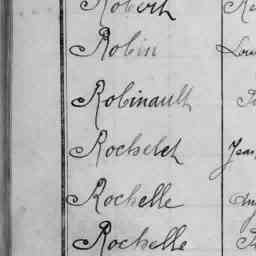 Robert
Robin
Robinault
Rochelet
Rochelle
Rochelle